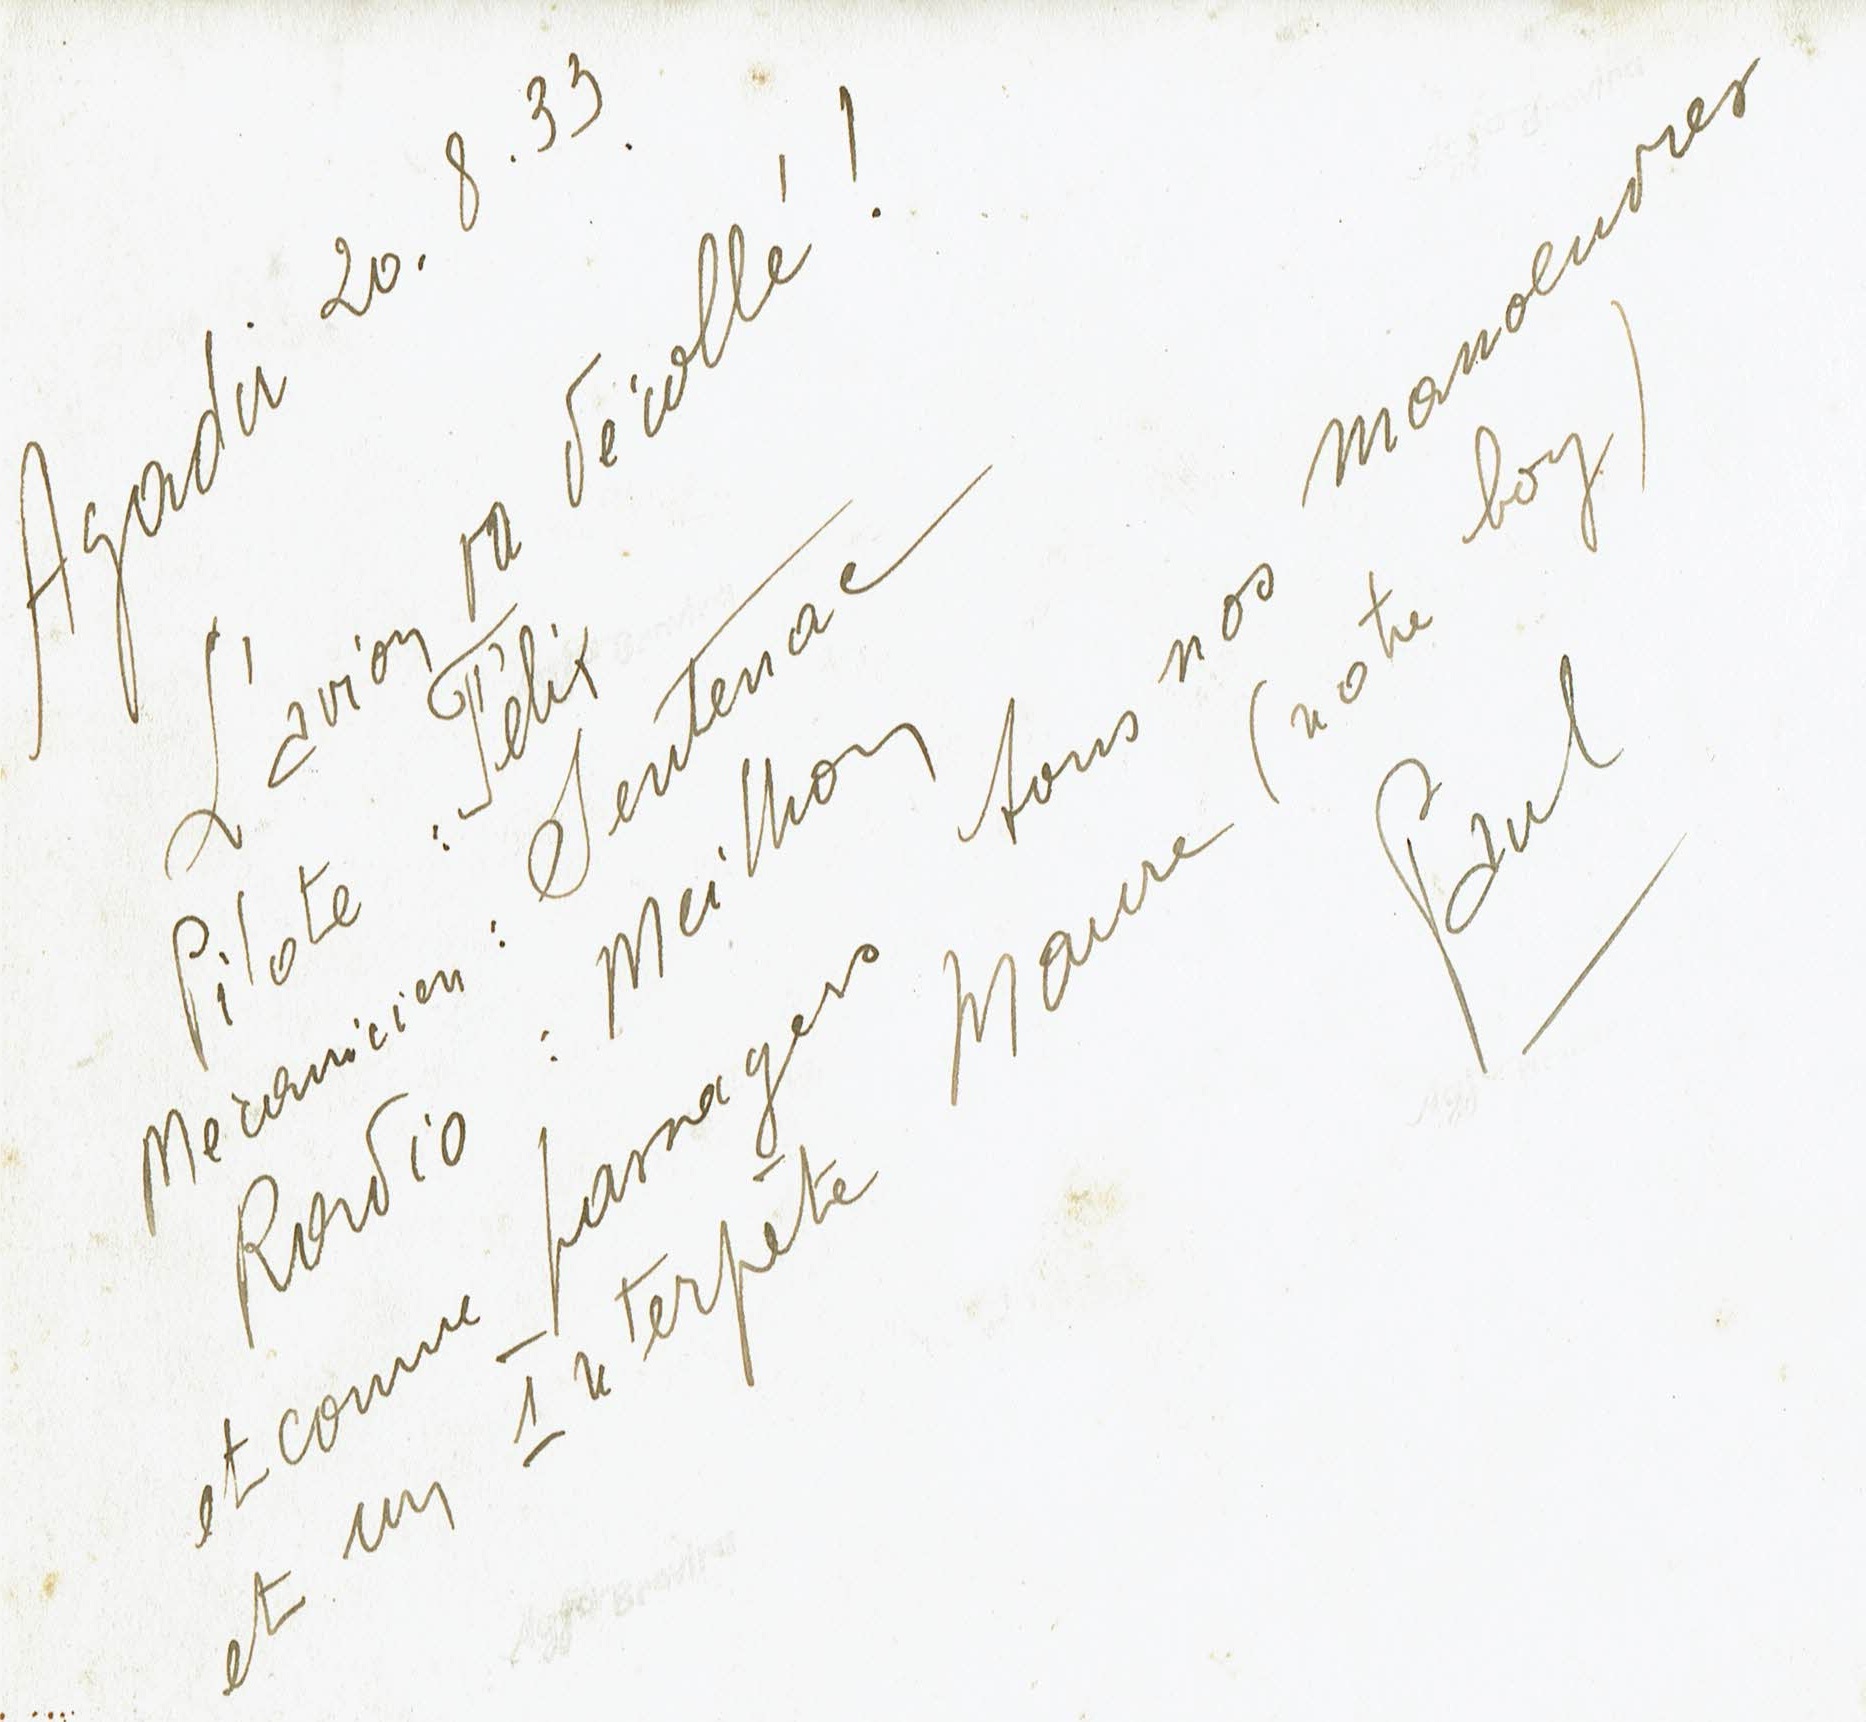 Agadir 20. 8. 33.
L'avion va décollé !
Pilote : Félix
Mécanicien : Sentenac
Radio : Meilhon
et comme passagers tous nos manoeuvres
et un Interpète Maure (notre boy)
Paul